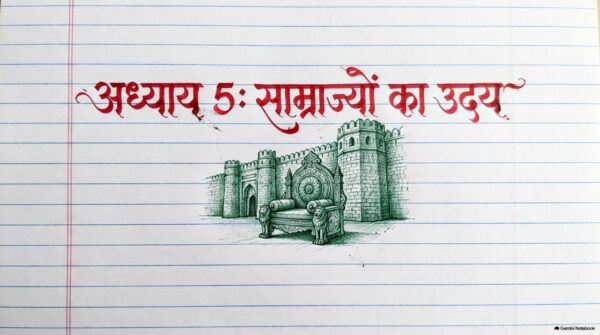 अध्याय 5: साम्राज्यों का उदय
Gemini Notebook